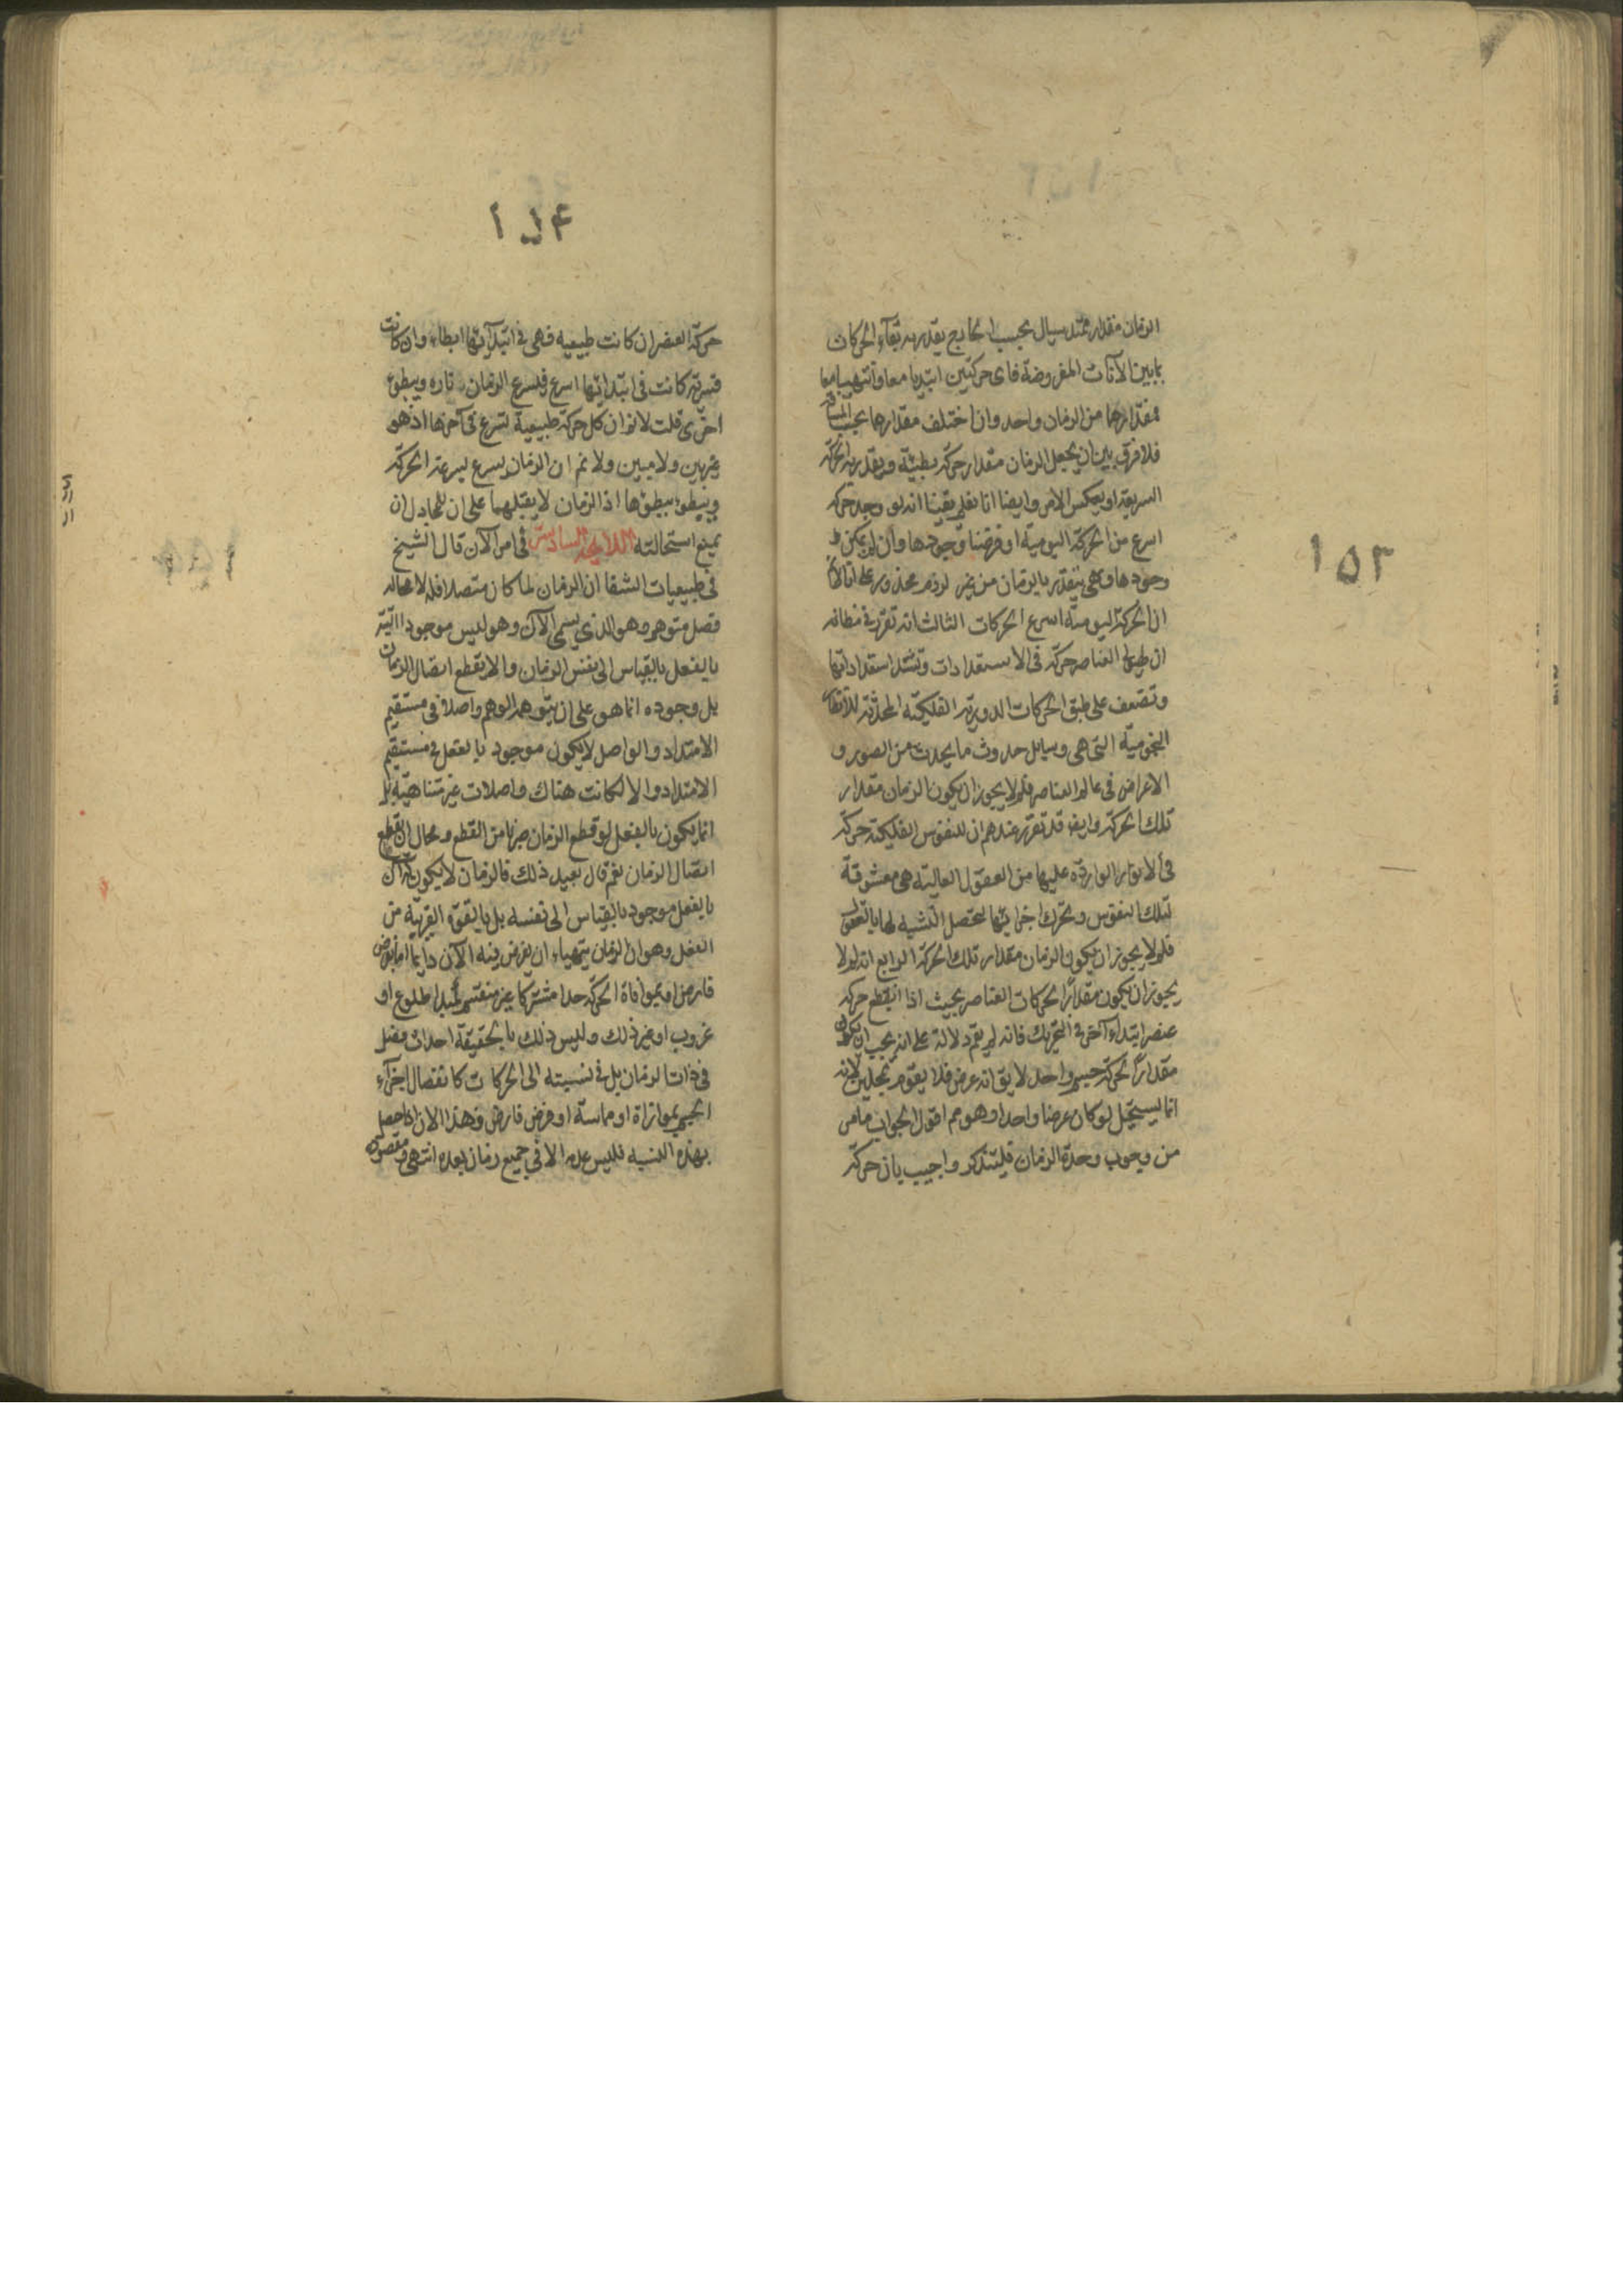 ١٥٣
الزمان مقدار ممتد سيال بحسب الخارج يقدر به بقآء الحركات
بما بين الآنات المفروضة فاى حركتين ابتديا معا وانتهيا معا
فمقدارهما من الزمان واحد وان اختلف مقدارهما بحسب المسافة
فلا فرق بين ان يجعل الزمان مقدار حركة بطيئة ويقدر به الحركة
السريعة او بعكس الامر وايضا انا نعلم يقينا انه لو وجد حركة
اسرع من الحركة اليومية او فرضنا وجودها وان لم يمكن
وجودها فهى يتقدر بالزمان من غير لزوم محذور على انا لانم
ان الحركة اليومية اسرع الحركات الثالث انه تقرر فى مظانه
ان العناصر حركة فى الاستعدادات وتشتد استعداداتها
وتضعف على طبق الحركات الدورية الفلكية المحدثة
النجومية التى هى وسايل حدوث ما يحدث من الصور و
الاعراض فى عالم العناصر فلم لا يجوز ان يكون الزمان مقدار
تلك الحركة وايضا قد تقرر عندهم ان للنفوس الفلكية حركة
فى الانوار الواردة عليها من العقول العالية هى معشوقة
لتلك النفوس وتحرك اجرامها لتحصل التشبه لها بالعقول
فلم لا يجوز ان يكون الزمان مقدار تلك الحركة الرابع انه لم لا
يجوز ان يكون مقداراً لحركات العناصر بحيث اذا انقطع حركة
عنصر ابتداء آخر فى التحريك فانه لم يقم دلالة على انه يجب ان يكون
مقداراً لحركة جسم واحد لا يق انه عرض فلا يقوم بمحلين لانه
انما يستحيل لو كان عرضا واحدا وهو مم اقول الجواب ما مر
من وجوب وحدة الزمان فليتذكر واجيب بان حركة
١٥٤
حركة العنصر ان كانت طبيعيه فهى فى ابتدآئها ابطاء وان كانت
قسرية كانت فى ابتدائها اسرع فيسرع الزمان تاره ويبطؤ
اخرى قلت لانم ان كل حركة طبيعية تسرع فى آخرها اذ هو
غير بين ولا مبين ولا نم ان الزمان يسرع بسرعة الحركة
ويبطؤ ببطؤها اذ الزمان لا يقبلهما على ان للمجادل ان
يمنع استحالته اللايحة السادس فى امر الآن قال الشيخ
فى طبيعيات الشفا ان الزمان لما كان متصلا فله لا محاله
فصل متوهم وهو الذى يسمى الآن وهو ليس موجودا البتة
بالفعل بالقياس الى نفس الزمان والا يقطع اتصال الزمان
بل وجوده انما هو على ان يتوهمه الوهم واصلا فى مستقيم
الامتداد والواصل لا يكون موجود بالفعل فى مستقيم
الامتداد والا لكانت هناك واصلات غير متناهية بل
انما يكون بالفعل لو قطع الزمان ضربا من القطع ومحال ان يقطع
اتصال الزمان ثم قال بعيد ذلك فالزمان لا يكون له آن
بالفعل موجود بالقياس الى نفسه بل بالقوة القريبة من
الفعل وهو ان الزمان يتهياء ان يفرض فيه الآن دايما اما بفرض
فارض او بموافاة الحركة حدا مشتركا غير منقسم كمبدا طلوع او
غروب او غير ذلك وليس ذلك بالحقيقة احداث فصل
فى ذات الزمان بل فى نسبته الى الحركات كانفصال اجزآء
الجسم بموازاة او مماسة او فرض فارض وهذا الان اذا حصل
بهذه النسبه فليس عدمه الا فى جميع زمان بعده انتهى ومقصوده